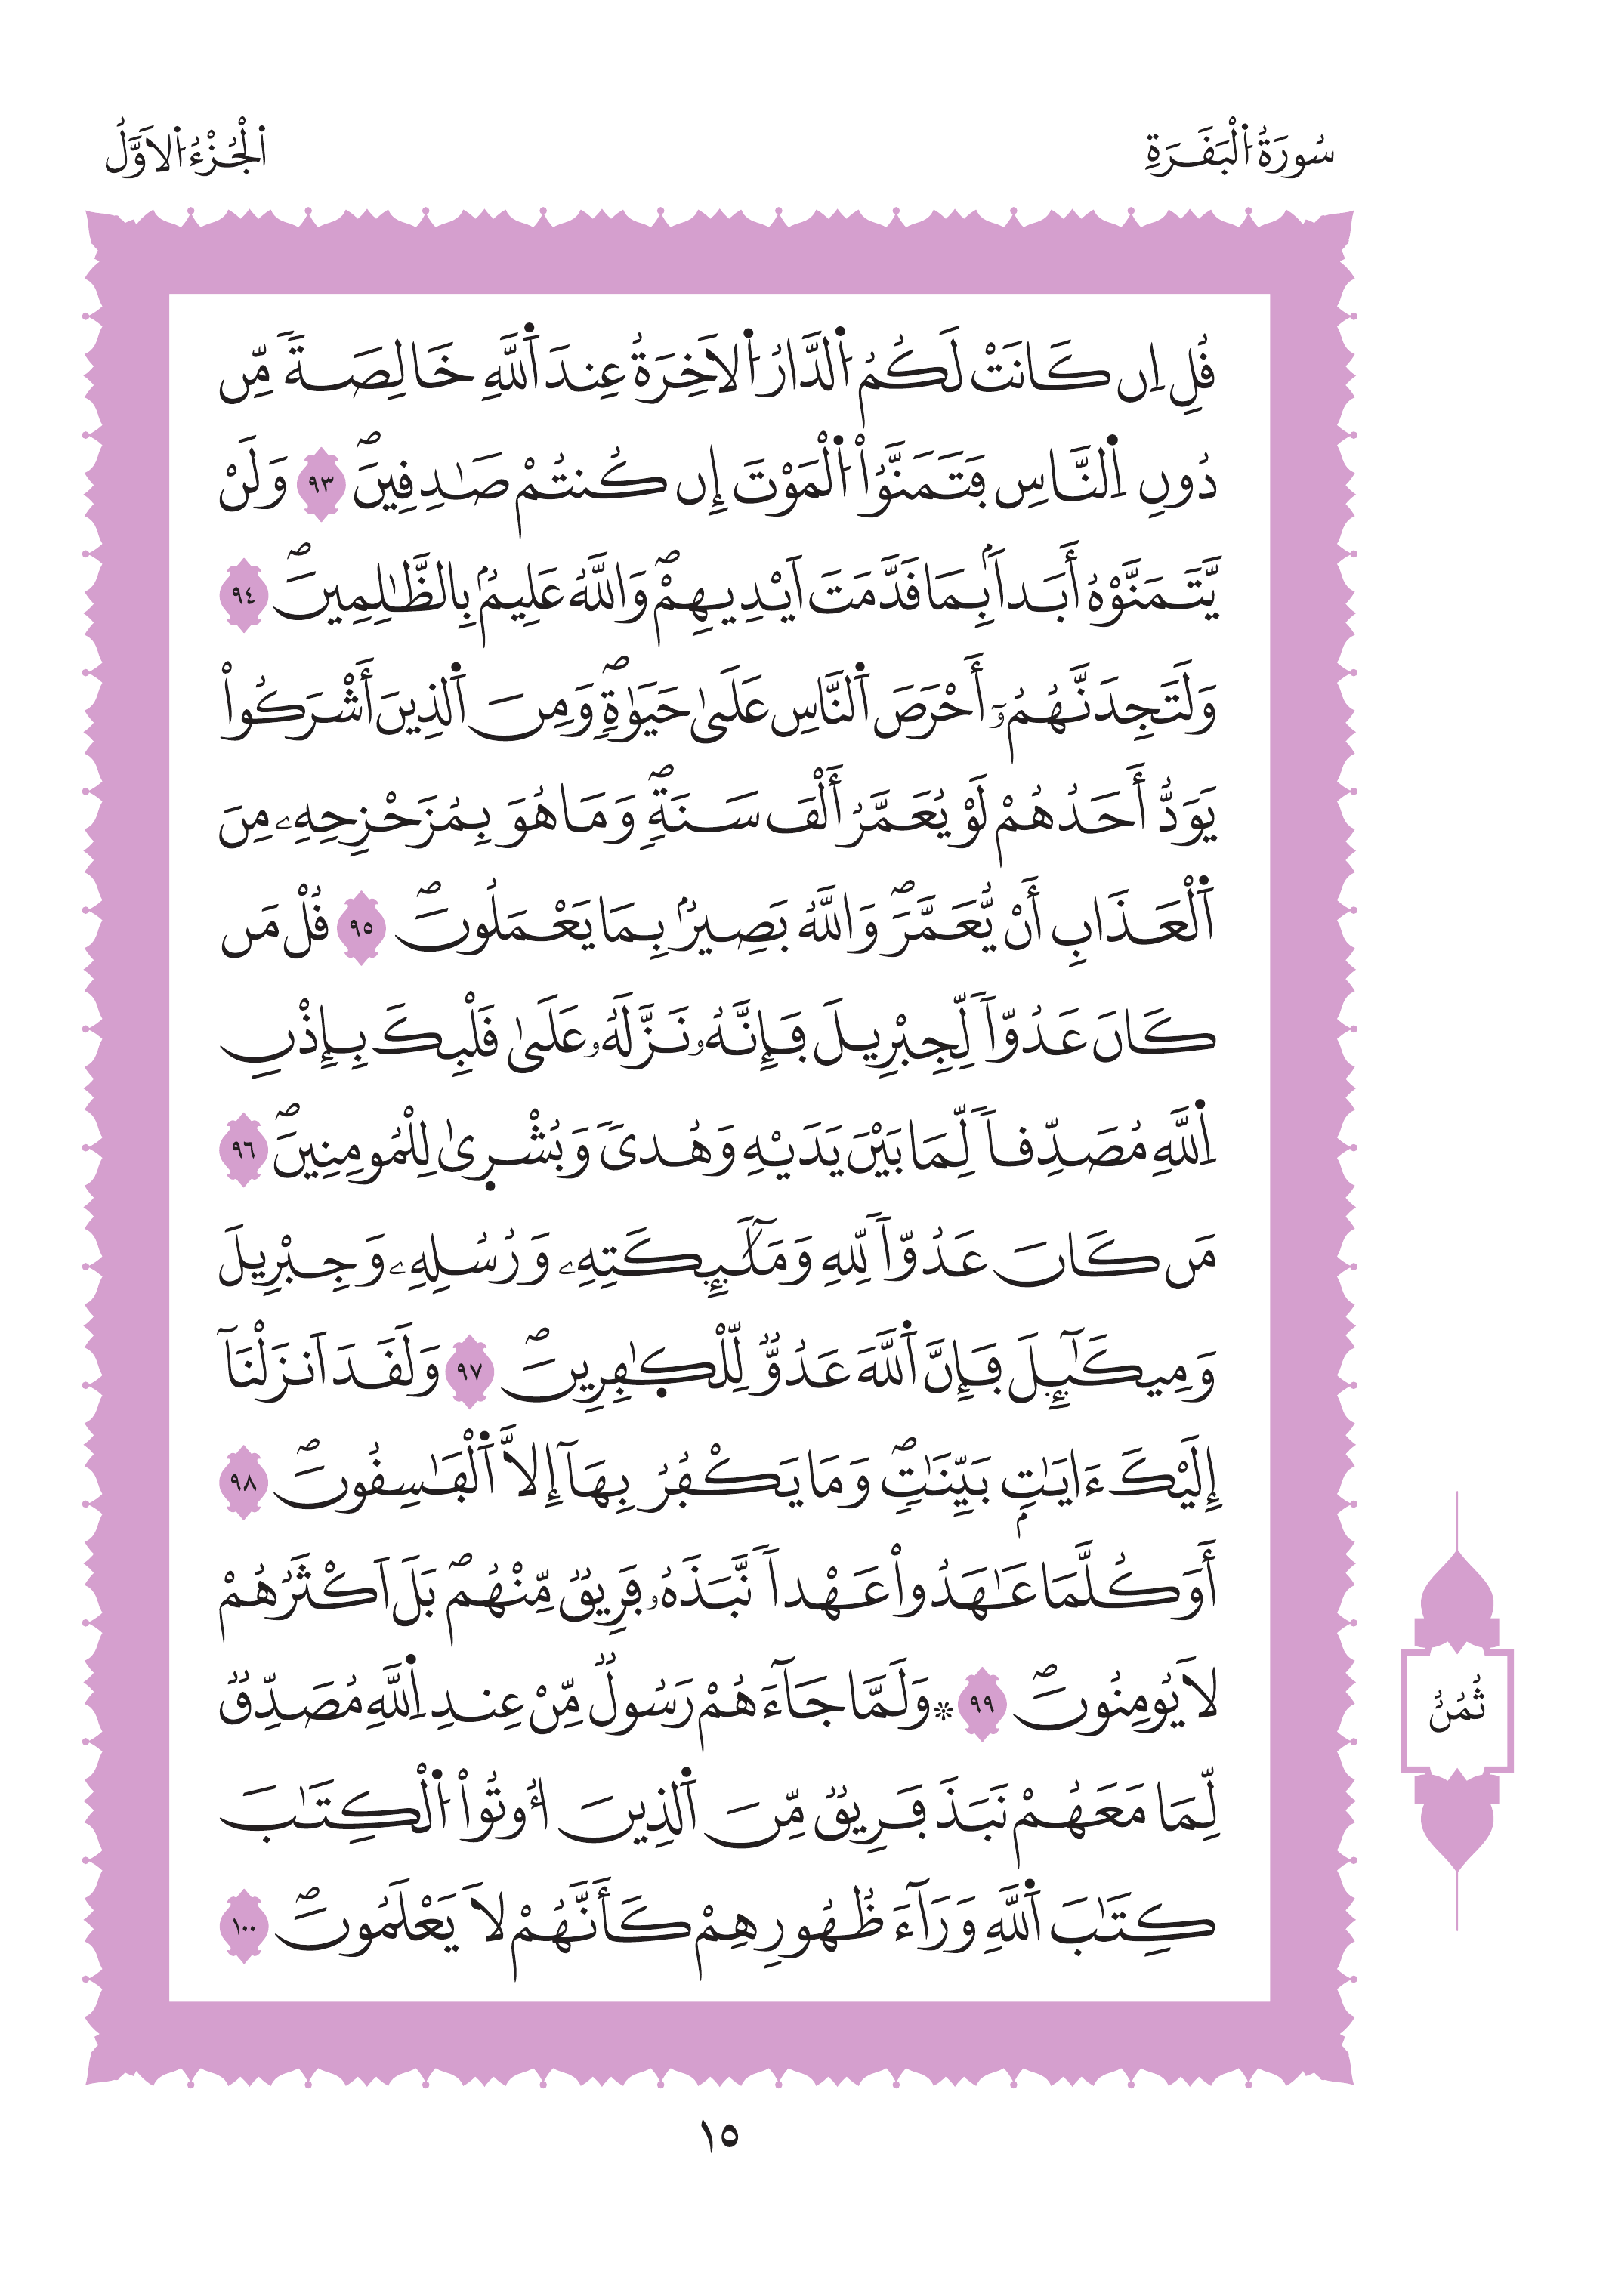 سُورَةُ اُ۬لْبَقَرَةِ
اُ۬لْجُزْءُ اُ۬لَاوَّلُ
قُلِ اِن كَانَتْ لَكُمُ اُ۬لدَّارُ اُ۬لَاخِرَةُ عِندَ اَ۬للَّهِ خَالِصَةٗ مِّن
دُونِ اِ۬لنَّاسِ فَتَمَنَّوُاْ اُ۬لْمَوْتَ إِن كُنتُمْ صَٰدِقِينَۖ ٩٣ وَلَنْ
يَّتَمَنَّوْهُ أَبَداَۢ بِمَا قَدَّمَتَ اَيْدِيهِمْۖ وَاللَّهُ عَلِيمُۢ بِالظَّٰلِمِينَۖ ٩٤
وَلَتَجِدَنَّهُمُۥٓ أَحْرَصَ اَ۬لنَّاسِ عَلَىٰ حَيَوٰةٖۖ وَمِنَ اَ۬لذِينَ أَشْرَكُواْ
يَوَدُّ أَحَدُهُمْ لَوْ يُعَمَّرُ أَلْفَ سَنَةٖۖ وَمَا هُوَ بِمُزَحْزِحِهِۦ مِنَ
اَ۬لْعَذَابِ أَنْ يُّعَمَّرَۖ وَاللَّهُ بَصِيرُۢ بِمَا يَعْمَلُونَۖ ٩٥ قُلْ مَن
كَانَ عَدُوّاٗ لِّجِبْرِيلَ فَإِنَّهُۥ نَزَّلَهُۥ عَلَىٰ قَلْبِكَ بِإِذْنِ
اِ۬للَّهِ مُصَدِّقاٗ لِّمَا بَيْنَ يَدَيْهِ وَهُدىٗ وَبُشْر۪ىٰ لِلْمُومِنِينَۖ ٩٦
مَن كَانَ عَدُوّاٗ لِّلهِ وَمَلَٰٓئِكَتِهِۦ وَرُسُلِهِۦ وَجِبْرِيلَ
وَمِيكَٰٓئِلَ فَإِنَّ اَ۬للَّهَ عَدُوّٞ لِّلْكٰ۪فِرِينَۖ ٩٧ وَلَقَدَ اَنزَلْنَآ
إِلَيْكَ ءَايَٰتِۢ بَيِّنَٰتٖۖ وَمَا يَكْفُرُ بِهَآ إِلَّا اَ۬لْفَٰسِقُونَۖ ٩٨
أَوَكُلَّمَا عَٰهَدُواْ عَهْداٗ نَّبَذَهُۥ فَرِيقٞ مِّنْهُمۖ بَلَ اَكْثَرُهُمْ
لَا يُومِنُونَۖ ٩٩ ۞وَلَمَّا جَآءَهُمْ رَسُولٞ مِّنْ عِندِ اِ۬للَّهِ مُصَدِّقٞ
ثُمُنُ
لِّمَا مَعَهُمْ نَبَذَ فَرِيقٞ مِّنَ اَ۬لذِينَ أُوتُواْ اُ۬لْكِتَٰبَ
كِتَٰبَ اَ۬للَّهِ وَرَآءَ ظُهُورِهِمْ كَأَنَّهُمْ لَا يَعْلَمُونَۖ ١٠٠
١٥